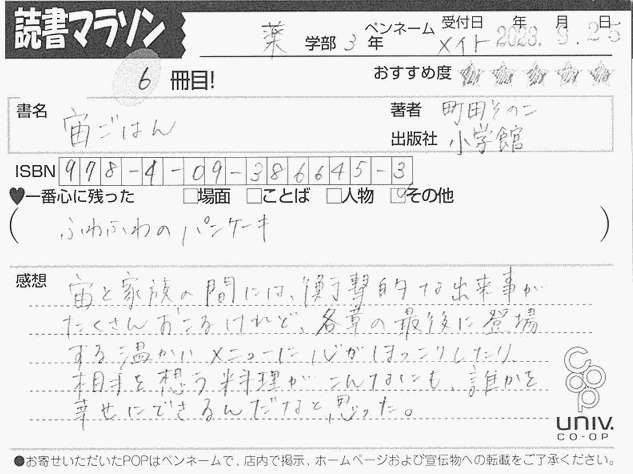 読書マラソン
薬 学部 3 年 ペンネーム メイト 受付日 2023年 9月 25
6 冊目! おすすめ度 ★★★★★
書名 宙ごはん 著者 町田そのこ
出版社 小学館
ISBN 978-4-09-386645-3
♥一番心に残った □場面 □ことば □人物 □その他
( ふわふわのパンケーキ )
感想 宙と家族の間には、衝撃的な出来事が
たくさんおこるけれど、各章の最後に登場
する温かいメニューに心がほっこりしたり、
相手を想う料理がこんなにも、誰かを
幸せにできるんだなと、思った。
coop
UNIV.
CO-OP
●お寄せいただいたPOPはペンネームで、店内で掲示、ホームページおよび宣伝物への転載をご了承ください。